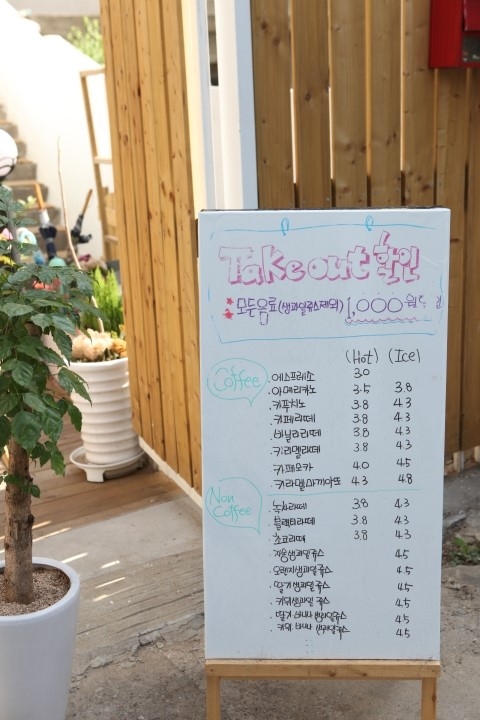 Take out 할인
* 모든음료(생과일쥬스제외) 1,000원
(Hot) (Ice)
Coffee
.에스프레소 3.0
.아메리카노 3.5 3.8
.카푸치노 3.8 4.3
카페라떼 3.8 4.3
.바닐라라떼 3.8 4.3
.카라멜라떼 3.8 4.3
카페모카 4.0 4.5
.카라멜마끼아또 4.3 4.8
Non Coffee
.녹차라떼 3.8 4.3
.블랙티라떼 3.8 4.3
.초코라떼 3.8 4.3
.생과일쥬스 4.5
.오렌지생과일쥬스 4.5
.딸기생과일쥬스 4.5
.키위생과일쥬스 4.5
.딸기 바나나 생과일쥬스 4.5
.키위 바나나 생과일쥬스 4.5